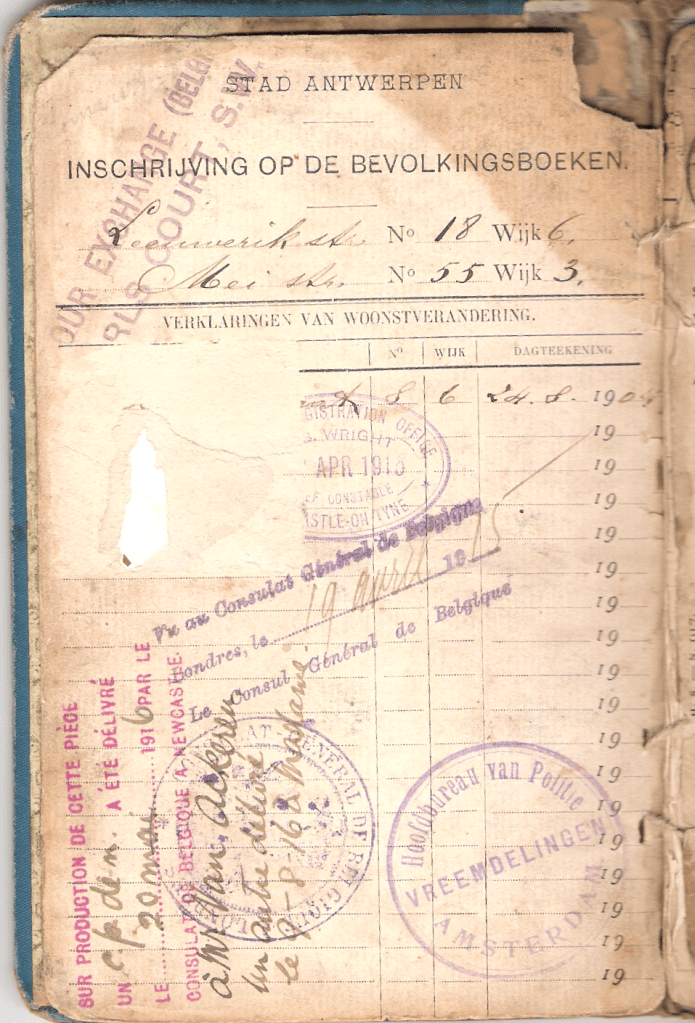 STAD ANTWERPEN
INSCHRIJVING OP DE BEVOLKINGSBOEKEN.
Leeuwerik str. No 18 Wijk 6.
Mei str. No 55 Wijk 3.
OUR EXCHANGE (BELG
RLS COURT, S.W.
VERKLARINGEN VAN WOONSTVERANDERING.
No WIJK DAGTEEKENING
8 6 24. 8. 1904
19
19
19
19
19
19
19
19
19
19
19
19
19
19
19
19
19
GISTRATION OFFICE
WRIGHT
APR 1915
EF CONSTABLE
ASTLE-ON-TYNE
Vu au Consulat Général de Belgique
Londres, le 19 avril 1915
Le Consul Général de Belgique
SUR PRODUCTION DE CETTE PIÈCE
UN c.p. de n. A ÉTÉ DÉLIVRÉ
LE 20 mai 1916 PAR LE
CONSULAT DE BELGIQUE À NEWCASTLE.
à Mr Van Ackeren
Un autre délivré
le -8-16 à Madame
CONSULAT GENERAL DE BELGIQUE
Hoofdbureau van Politie
VREEMDELINGEN
AMSTERDAM